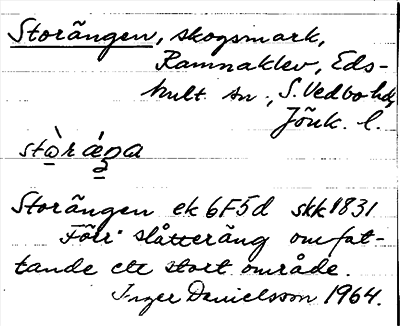 Storängen, skogsmark,
Ramnaklev, Eds-
hult sn., S. Vedbo hd,
Jönk. l.
stòráŋa
Storängen ek 6F5d skk 1831
Förr slåtteräng omfat-
tande ett stort område.
Inger Danielsson 1964.